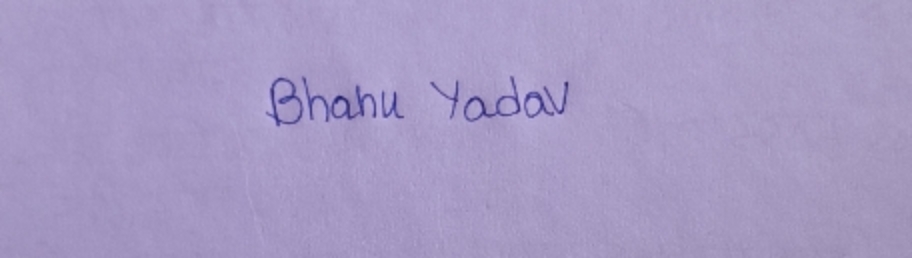 Bhanu Yadav